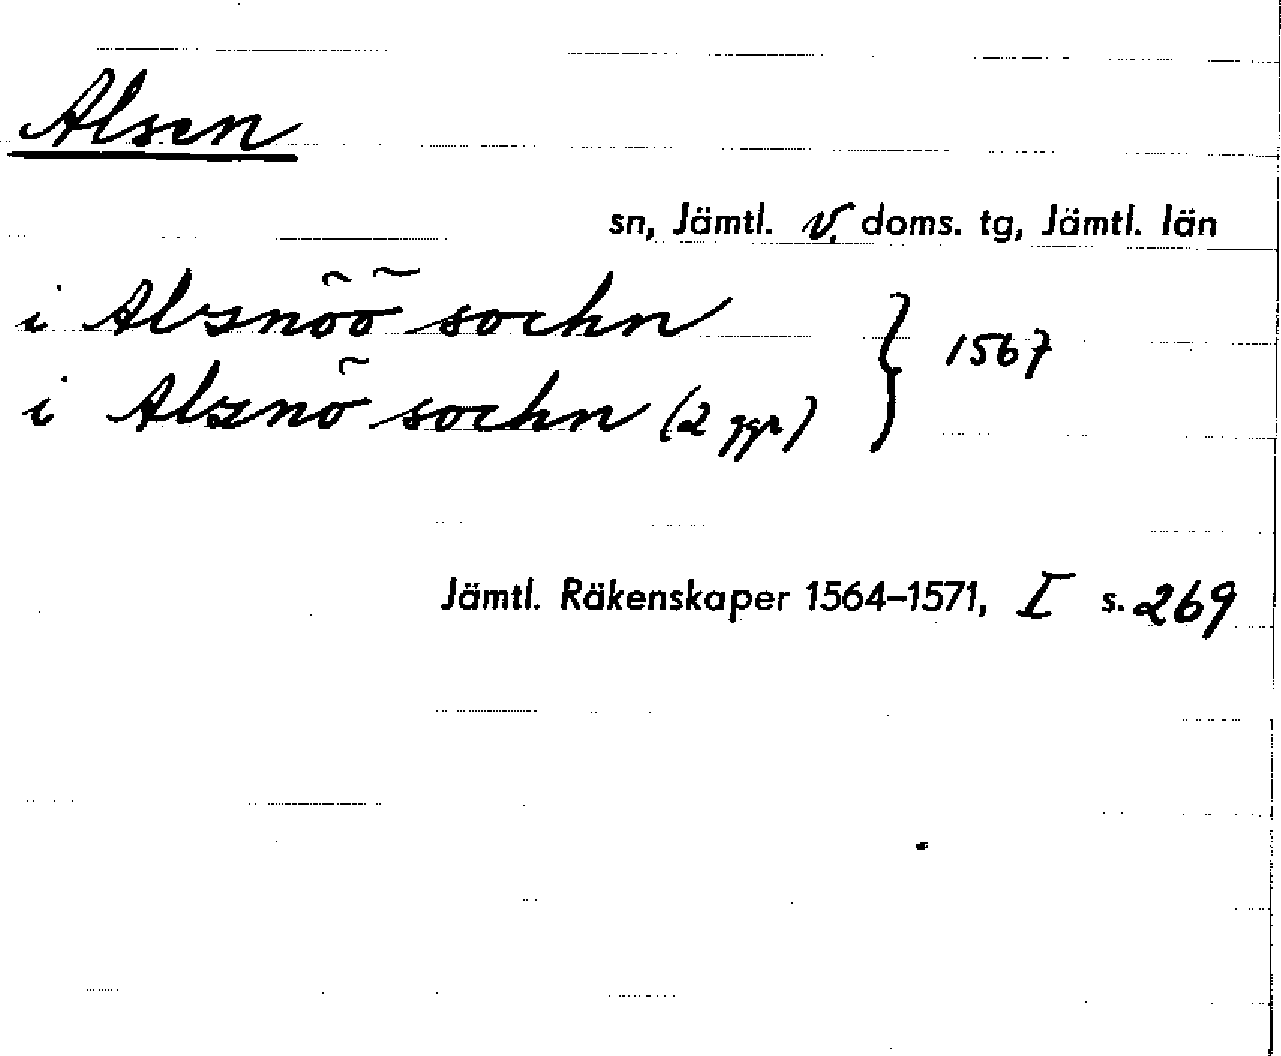 Alsen
sn, Jämtl. v. doms. tg, Jämtl. län
i Alsznöö sochn } 1567
i Alsznö sochn (2 ggr)
Jämtl. Räkenskaper 1564–1571, I s. 269